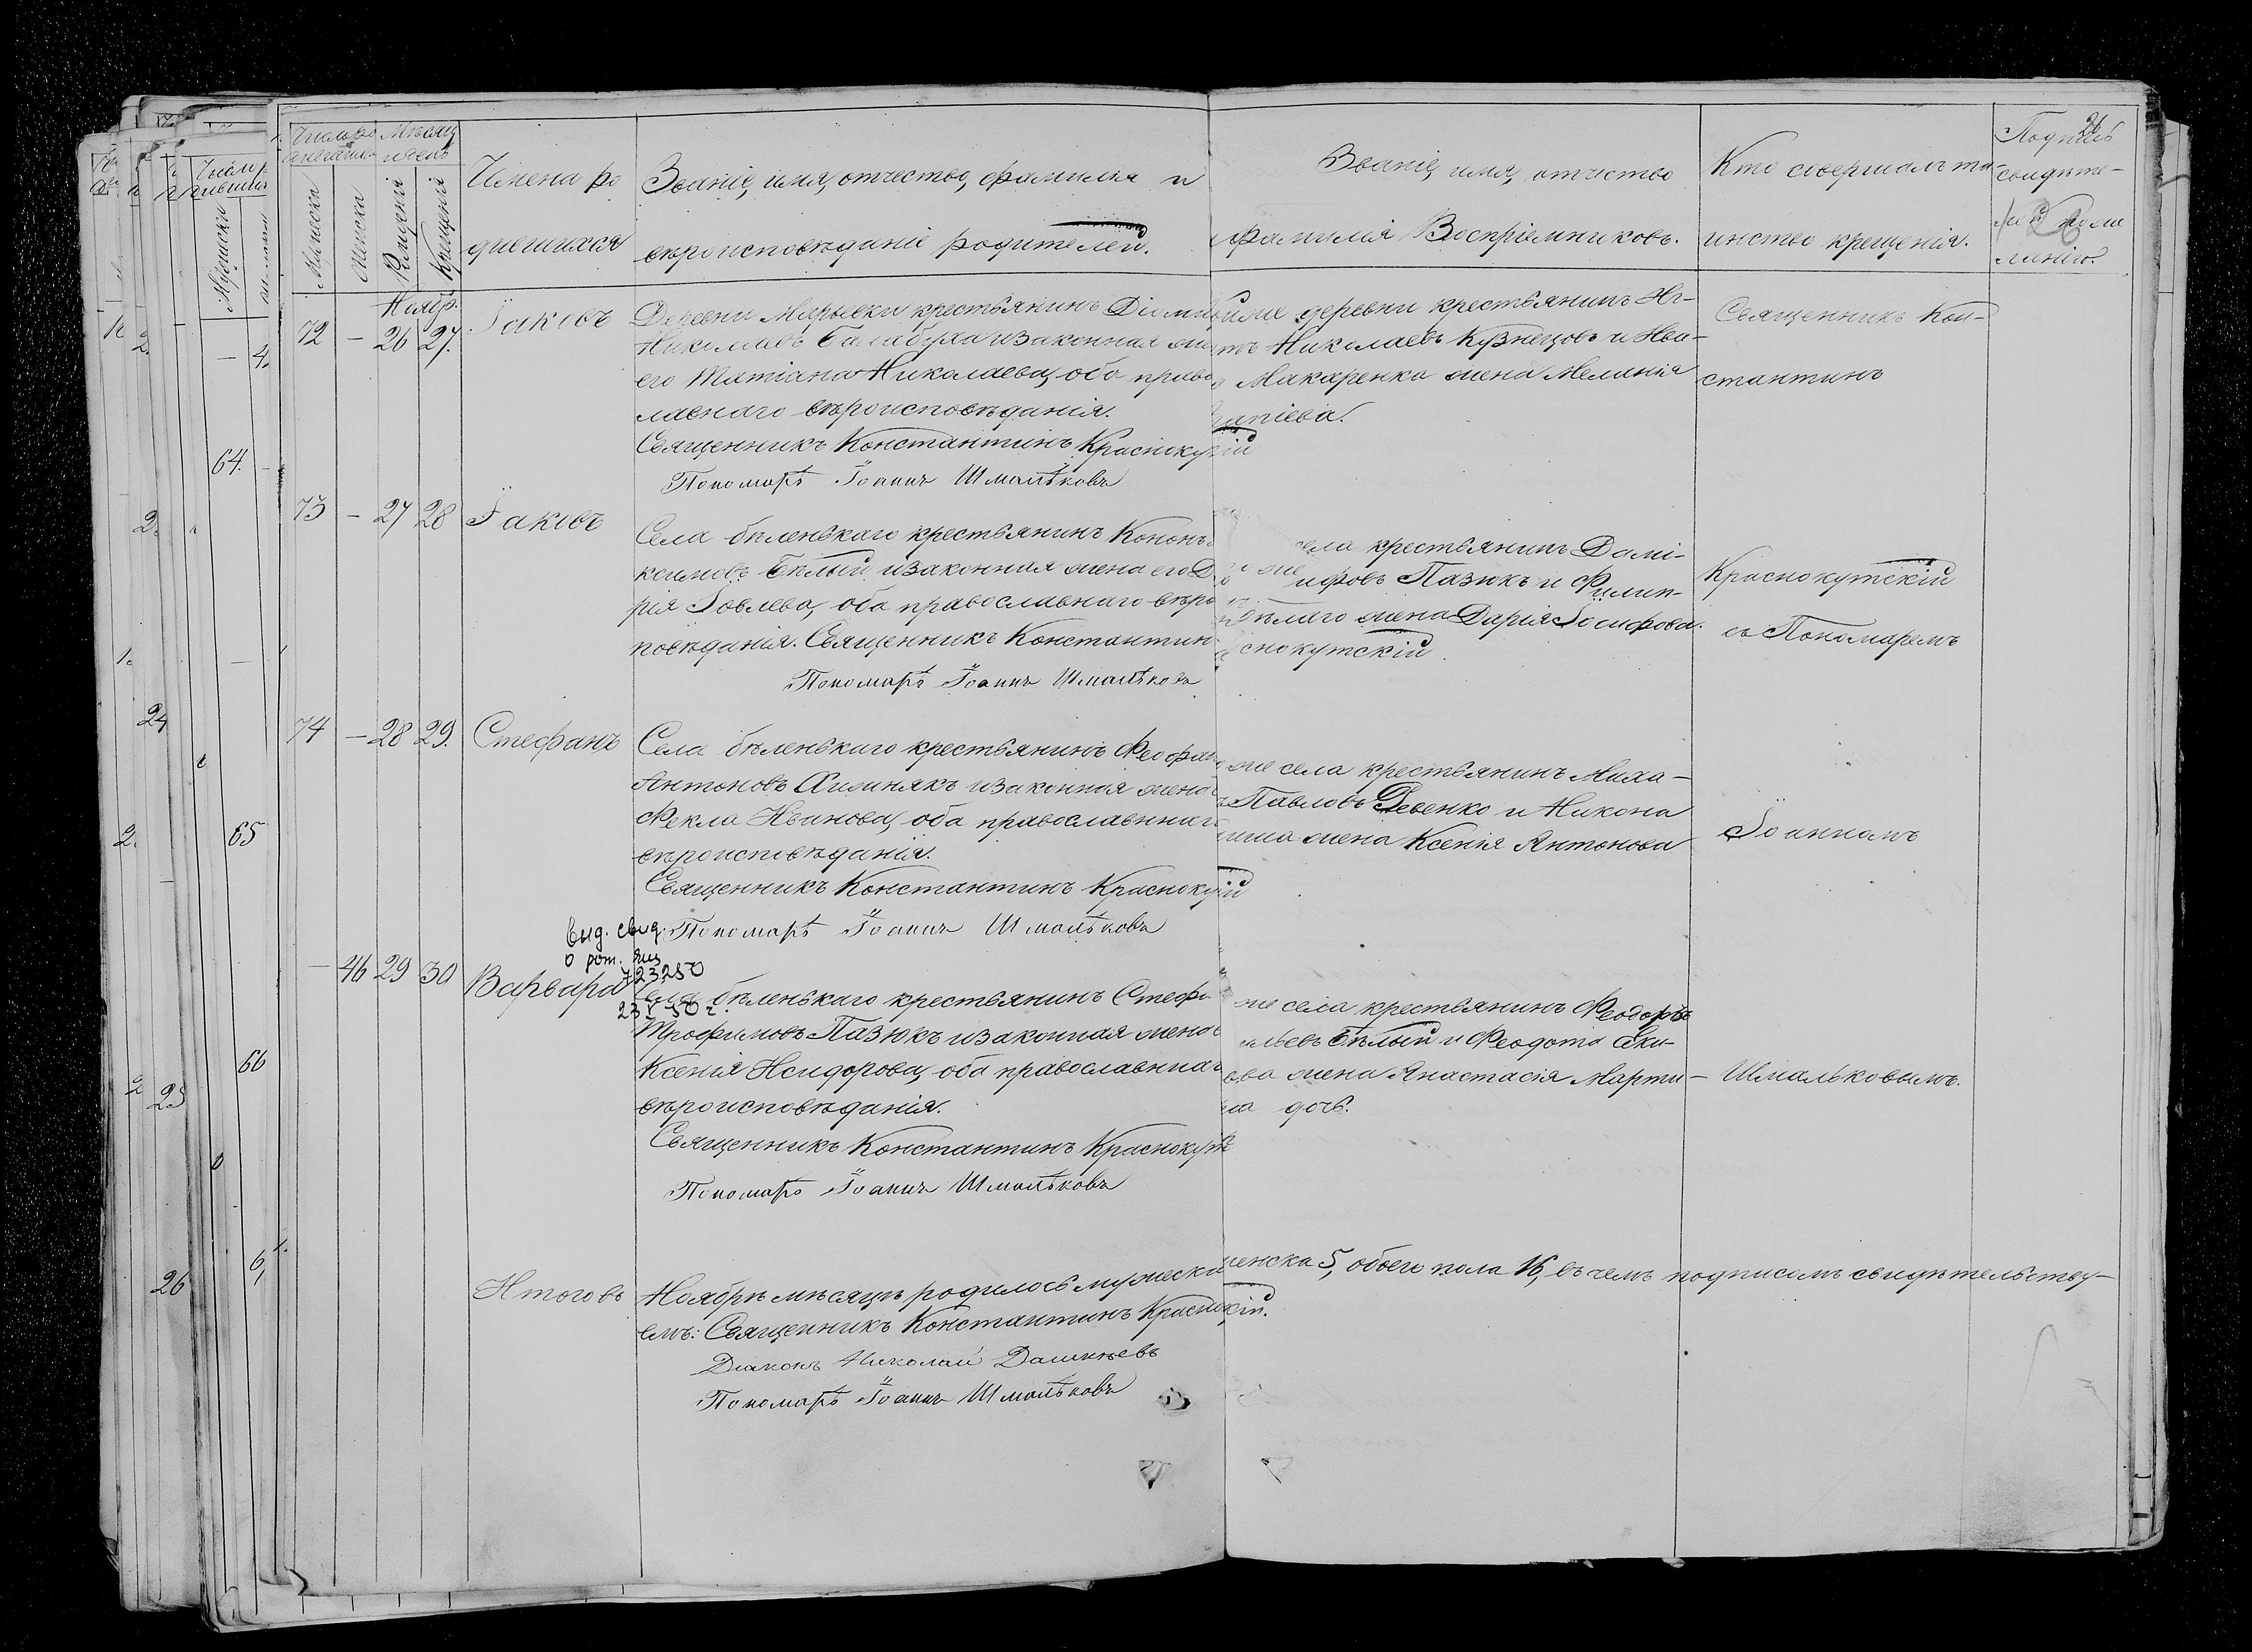 Число ро Мѣсяц
и день
Мужеска
Женска
Рожденія
Крещенія
Имена ро
дившихся
Званіе, имя, отчество, фамилія и
вѣроисповѣданіе родителей.
Званіе, имя, отчество
фамилія Воспріемниковъ.
Кто совершалъ та
инство крещенія.
Подпись
свидѣте-
Ноябр.
72 – 26 27. Іаковъ
Деревни Марьевки крестьянинъ
Николаевъ Балабуха и законная
его Татіана Николаева, оба право
лавнаго вѣроисповѣданія.
Священникъ Константинъ Красноку
Пономарь Іоаннъ Шмальковъ
деревни крестьянинъ
Николаевъ Кузнецовъ и Ива-
Макаренка жена Меланія
Священникъ Кон-
стантинъ
73 – 27 28 Іаковъ
Села бѣленькаго крестьянинъ Кононъ
ксимовъ Бѣлый и законная жена его
рія Іовлева, оба православнаго вѣро
повѣданія. Священникъ Константин
Пономарь Іоаннъ Шмальковъ
села крестьянинъ Дамі-
ифовъ Пазюкъ и Филип-
Бѣлаго жена Дарія Іосифова.
снокутскій
Краснокутскій
съ Пономаремъ
74 – 28 29. Стефанъ
Села бѣленькаго крестьянинъ Феофан
Антоновъ Химнякъ и законная жена
Фекла Иванова, оба православнаг
вѣроисповѣданія.
Священникъ Константинъ Красноку
Пономарь Іоаннъ Шмальковъ
же села крестьянинъ Миха-
Павловъ Девенко и Никона
жена Ксенія Антонова
Іоанномъ
Выд. свид.
о рож.
723250
23 V 50 г.
– 46 29 30 Варвара
Села бѣленькаго крестьянинъ Стефа
Трофимовъ Пазюкъ и законная жена
Ксенія Исидорова, оба православнаг
вѣроисповѣданія.
Священникъ Константинъ Краснокут
Пономарь Іоаннъ Шмальковъ
же села крестьянинъ Феодоръ
Бѣлый и Феодота
жена Анастасія Марти-
на дочь.
Шмальковымъ.
Итого въ Ноябрѣ мѣсяцѣ родилось мужеска
женска 5, обоего пола 16, въ чемъ подписомъ свидѣтельству-
емъ: Священникъ Константинъ Красноку
кій.
Діаконъ Николай Дашкѣевъ
Пономарь Іоаннъ Шмальковъ
64.
65
66
24
25
26